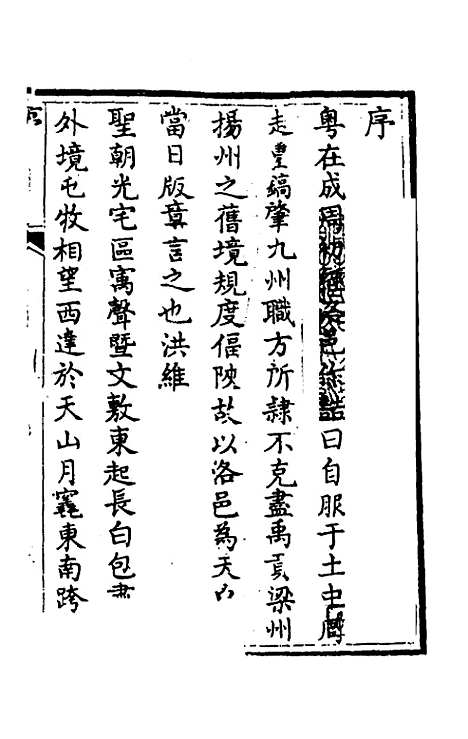 序
粵在成周初經洛邑之誥曰自服于土中周
走豐鎬肇九州職方所隸不克盡禹貢梁州
揚州之舊境規度偪陿故以洛邑為天
當日版章言之也洪維
聖朝光宅區寓聲暨文敷東起長白包
外境屯牧相望西達於天山月竁東南跨